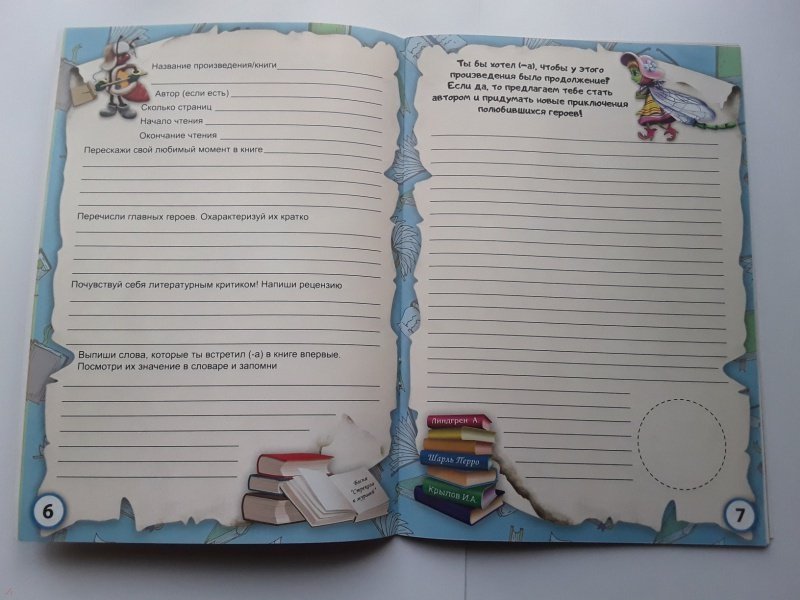 Название произведения/книги
Автор (если есть)
Сколько страниц
Начало чтения
Окончание чтения
Перескажи свой любимый момент в книге
Перечисли главных героев. Охарактеризуй их кратко
Почувствуй себя литературным критиком! Напиши рецензию
Выпиши слова, которые ты встретил (-а) в книге впервые.
Посмотри их значение в словаре и запомни
Басня
"Стрекоза
и муравей"
6
Ты бы хотел (-а), чтобы у этого
произведения было продолжение?
Если да, то предлагаем тебе стать
автором и придумать новые приключения
полюбившихся героев!
Линдгрен А.
Шарль Перро
Крылов И.А.
7